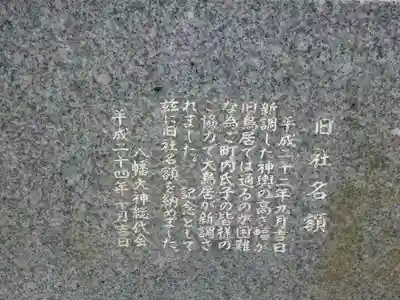 旧社名額
平成二十二年九月吉日
新調した神輿の高さ幅が
旧鳥居では通るのが困難
な為ご町内氏子の皆様の
ご協力で大鳥居が新調さ
れました。 記念として
茲に旧社名額を納めました。
八幡大神総代会
平成二十四年 月吉日